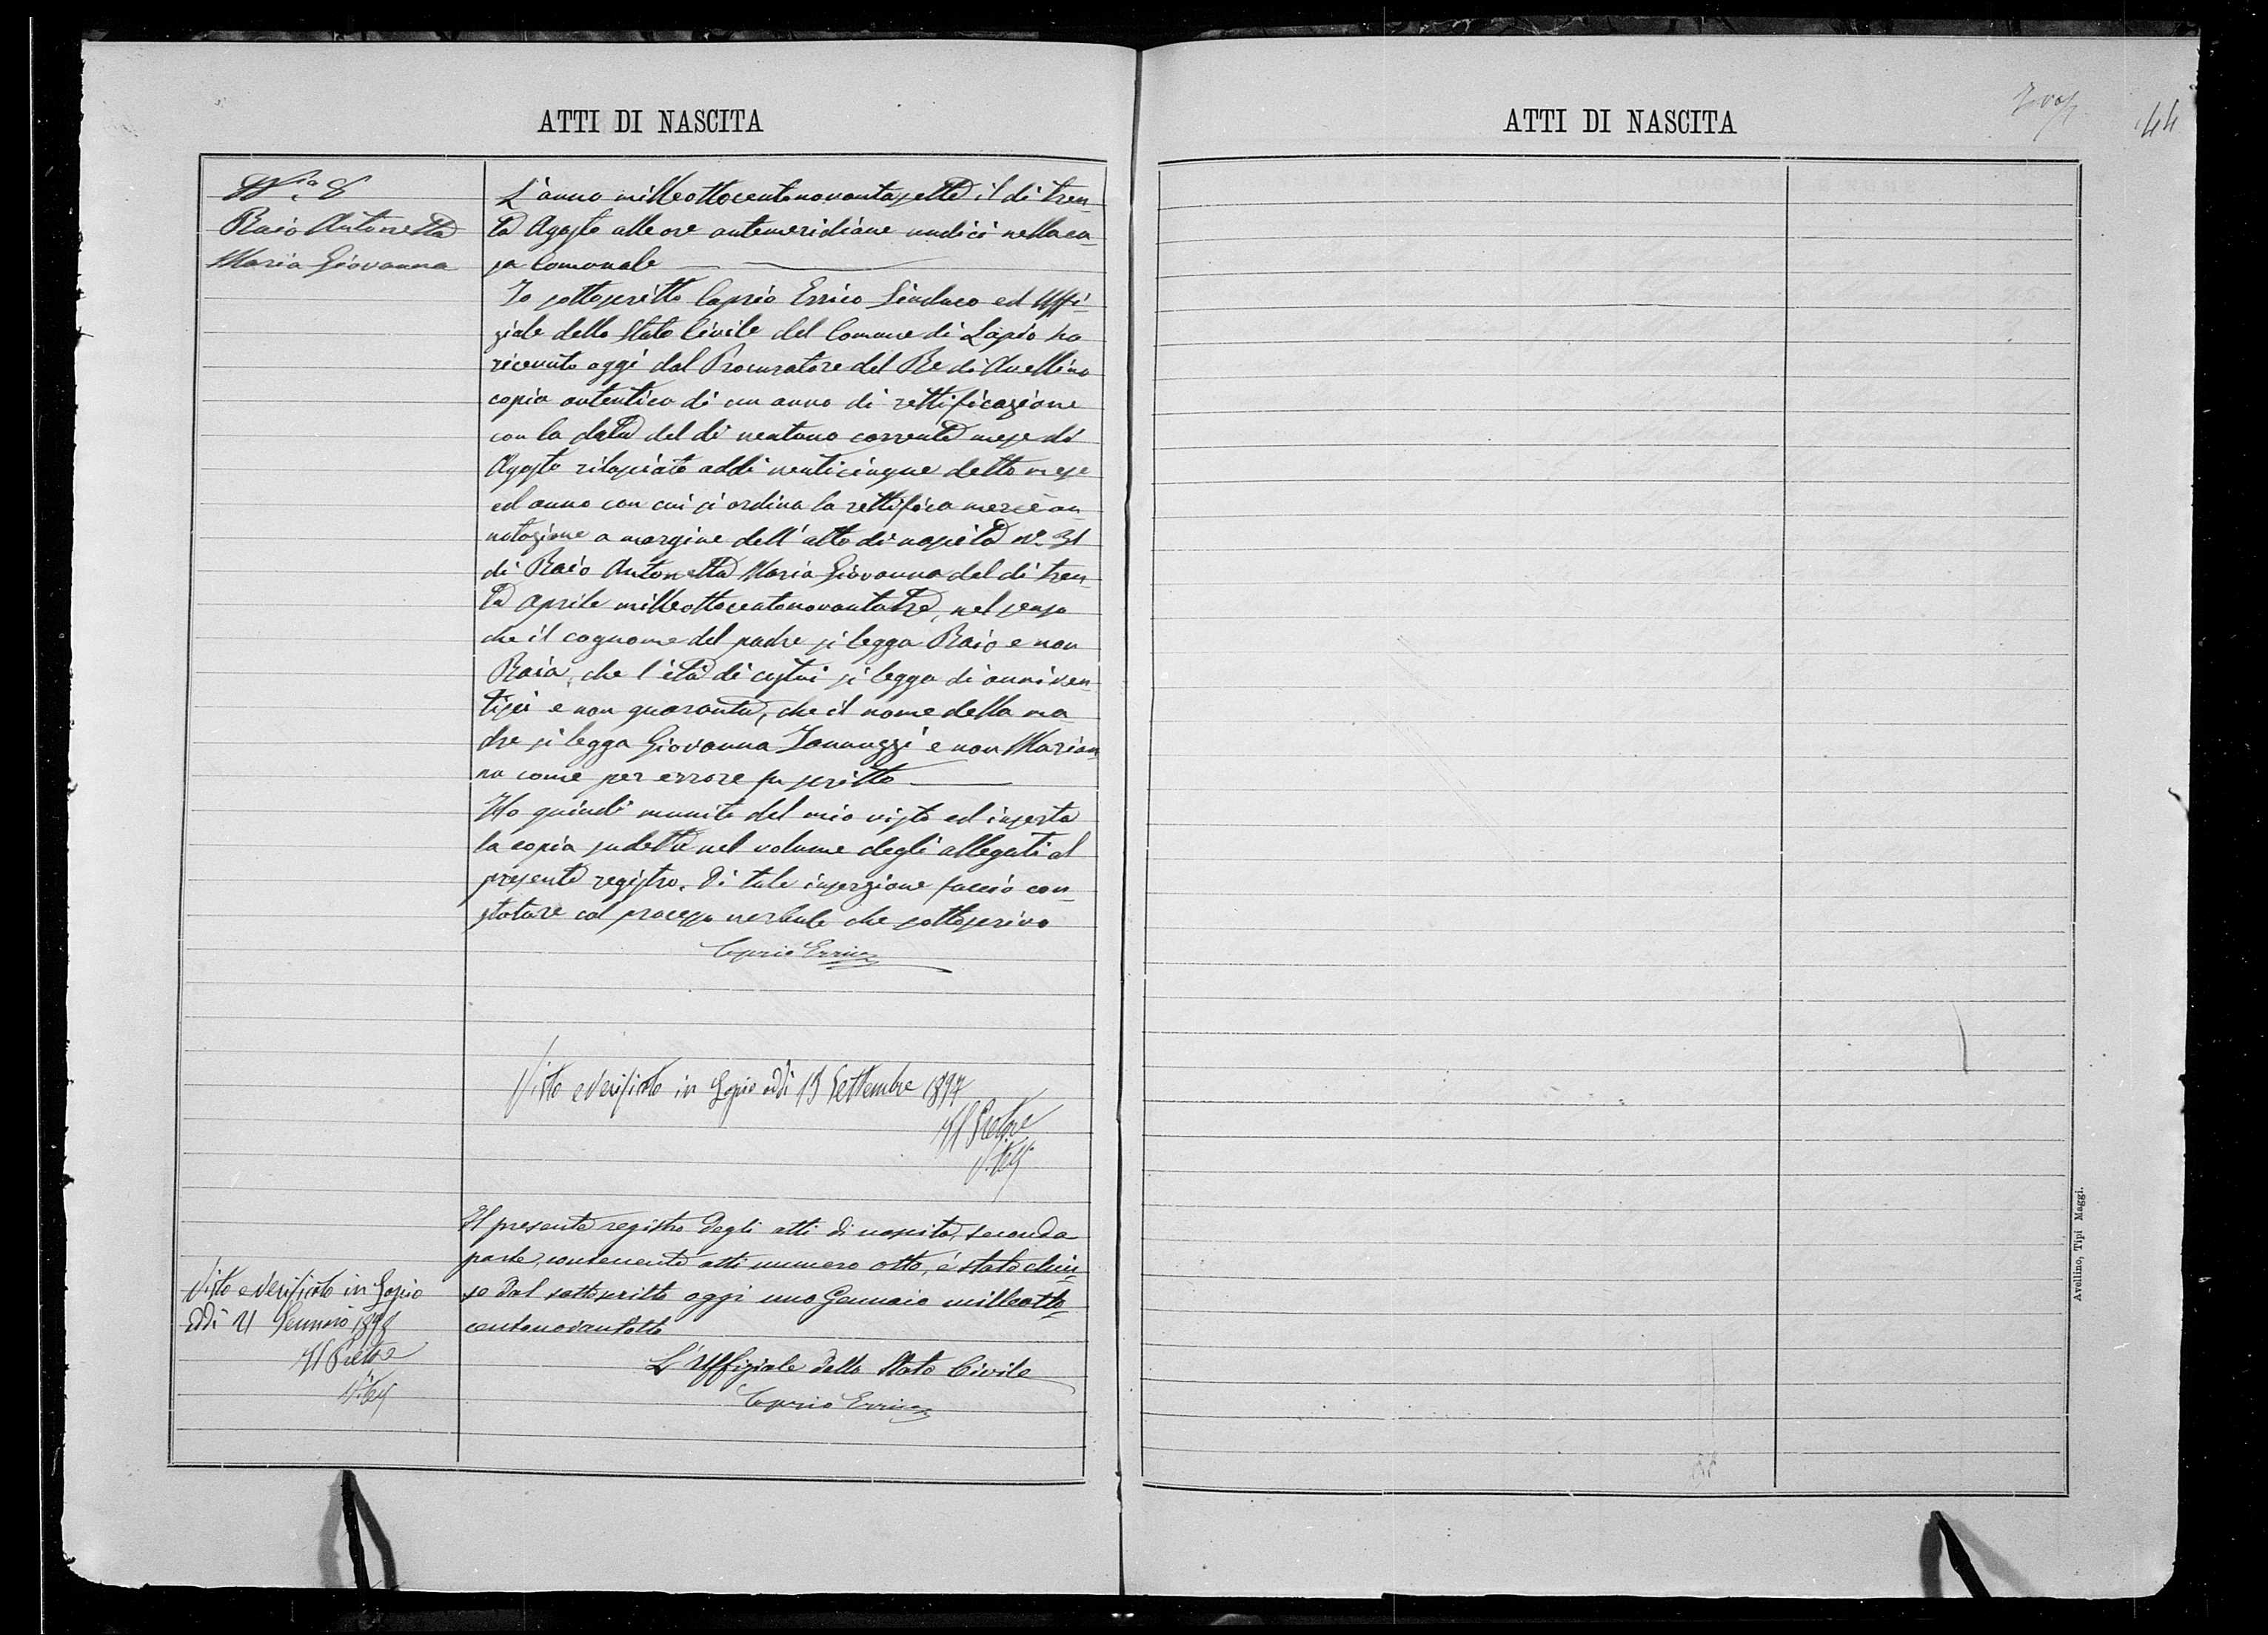 ATTI DI NASCITA
N.o 8
Raio Antonetta
Maria Giovanna
L'anno milleottocentonovantasette il dì tren-
ta Agosto alle ore antemeridiane undici nella ca-
sa Comunale
Io sottoscritto Caprio Errico Sindaco ed Uffi-
ziale dello Stato Civile del Comune di Lapio ho
ricevuto oggi dal Procuratore del Re di Avellino
copia autentica di un anno di rettificazione
con la data del dì ventuno corrente mese di
Agosto rilasciato addì venticinque detto mese
ed anno con cui si ordina la rettifica mercè an-
notazione a margine dell'atto di nascita n.° 31
di Raio Antonetta Maria Giovanna del dì tren-
ta Aprile milleottocentonovantatre, nel senso
che il cognome del padre si legga Raio e non
Raia, che l'età di costui si legga di anni ven-
tisei e non quaranta, che il nome della ma
dre si legga Giovanna Iannuzzi e non Marian
na come per errore fu scritto
Ho quindi munito del mio visto ed inserta
la copia sudetta nel volume degli allegati al
presente registro. Di tale inserzione faccio con-
statare col processo verbale che sottoscrivo
Caprio Errico
Visto e Verificato in Lapio addì 15 Settembre 1897
Il Pretore
Il presente registro degli atti di nascita, seconda
parte, contenente atti numero otto, è stato chiu-
so dal sottoscritto oggi uno Gennaio milleotto-
centonovantotto
L'Uffiziale dello Stato Civile
Caprio Errico
Visto e Verificato in Lapio
addì 21 Gennaio 1898
Il Pretore
ATTI DI NASCITA
44
Avellino, Tipi Maggi.